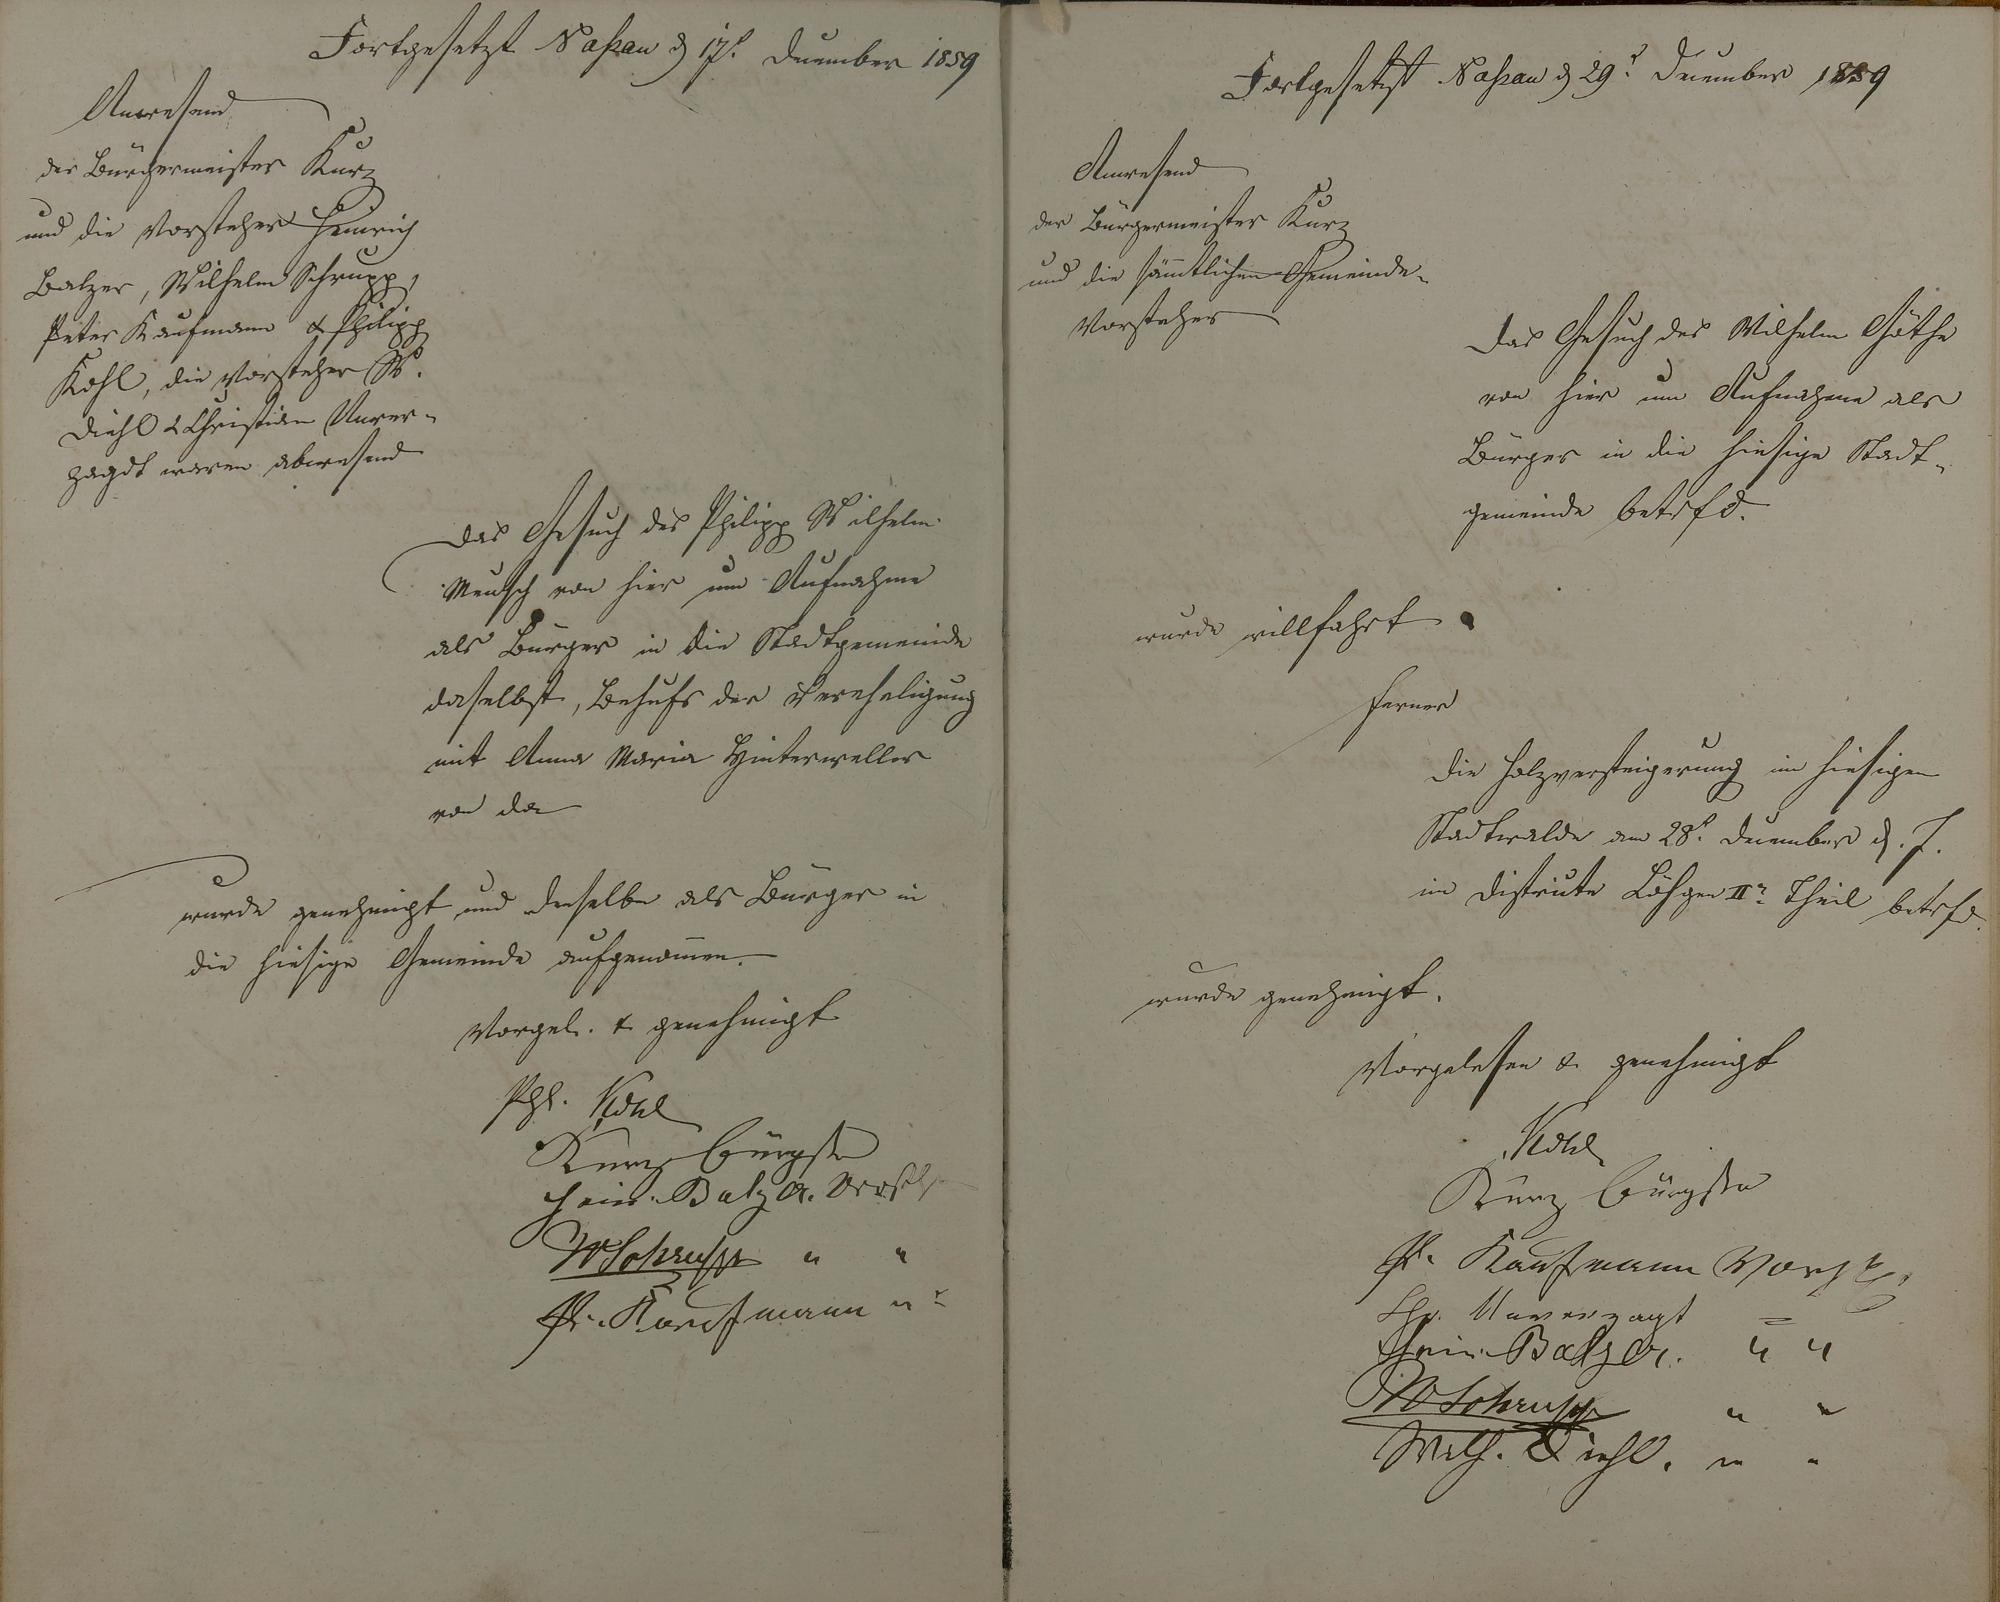 Fortgesetzt Naßau d 17t. December 1859
Anwesend
der Bürgermeister Kurz
und die Vorsteher Heinrich
Balzer, Wilhelm Schrupp,
Peter Kaufmann & Philipp
Kohl, die Vorsteher W.
Diehl & Christian Unver-
zagdt waren abwesend
Das Gesuch des Philipp Wilhelm
Meusch von hier um Aufnahme
als Bürger in die Stadtgemeinde
daselbst, Behufs der Vereheligung
mit Anna Maria Hinterweller
von da
wurde genehmigt und derselbe als Bürger in
die hiesige Gemeinde aufgenommen.
Vorgel. & genehmigt
Phl. Kohl
Kurz Bürgstr
Hein. Balzer. Vorsth
W Schrupp " "
Pr. Kaufmann " "
Fortgesetzt Naßau d 29t. December 1859
Anwesend
der Bürgermeister Kurz
und die sämtlichen Gemeinde-
Vorsteher
Das Gesuch des Wilhelm Göthe
von hier um Aufnahme als
Bürger in die hiesige Stadt-
gemeinde betrfd.
wurde willfahrt
Ferner
Die Holzversteigerung im hiesigen
Stadtwalde am 28t. December d. J.
im Districte Löhgen IIr. Theil betrfd.
wurde genehmigt.
Vorgelesen & genehmigt
Kohl
Kurz Bürgstr
Pr. Kaufmann Vorsth.
Chr. Unverzagt =
Hein. Balzer. " "
W Schrupp " "
Wilh. Diehl. " "